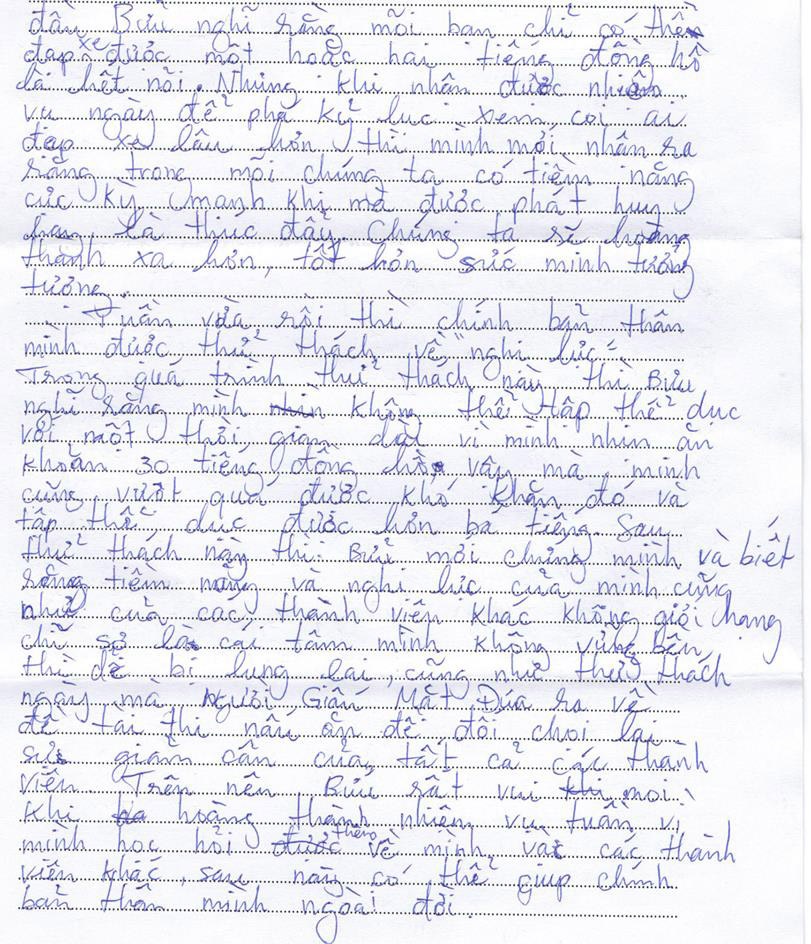 đầu Bửu nghĩ rằng mỗi bạn chỉ có thể
đạp xe được một hoặc hai tiếng đồng hồ
là hết nỗi. Nhưng khi nhận được nhiệm
vụ ngày để phá kỷ lục xem coi ai
đạp xe lâu hơn thì mình mới nhận ra
rằng trong mỗi chúng ta có tiềm năng
cực kỳ mạnh khi mà được phát huy
hay là thúc đẩy. Chúng ta sẽ hoàng
thành xa hơn, tốt hơn sức mình tưởng
tượng.
Tuần vừa rồi thì chính bản thân
mình được thử thách về "nghị lực".
Trong quá trình thử thách này thì Bửu
nghĩ rằng mình không thể tập thể dục
với một thời gian dài vì mình nhịn ăn
khoản 30 tiếng đồng hồ, vậy mà mình
cũng vượt quá được khó khăn đó và
tập thể dục được hơn ba tiếng. Sau
thử thách này thì Bửu mới chứng minh và biết
rằng tiềm năng và nghị lực của mình cũng
như của các thành viên khác không giới hạng
chỉ sợ là cái tâm mình không vững bền
thì dễ bị lung lai, cũng như thử thách
ngày mà Người Giấu Mặt Đưa ra về
đề tài thi nấu ăn để đối choi lại
sự giảm cân của tất cả các thành
viên. Trên nên Bửu rất vui mọi
khi hoàng thành nhiệm vụ tuần vì
mình học hỏi thêm về mình và các thành
viên khác, sau này có thể giúp chính
bản thân mình ngoài đời.